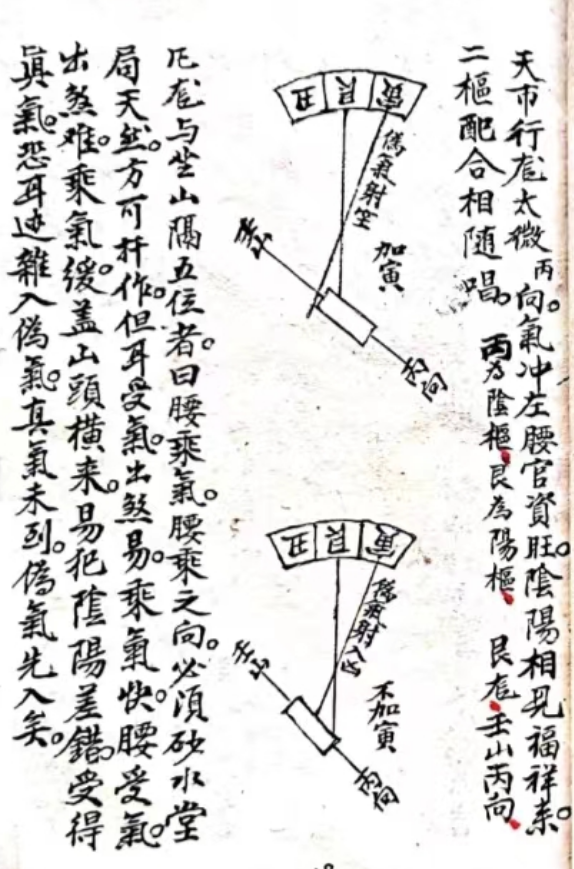 天市行龙太微丙向。氣冲左腰官資旺。陰陽相見福祥来。
二樞配合相随唱。丙為陰樞。艮為陽樞。艮龙。壬山丙向。
丑艮寅
偽氣射空
加寅
壬山
丙向
丑艮寅
偽氣射入穴
不加寅
壬山
丙向
凡龙与坐山隔五位者。曰腰乘氣。腰乘之向。必須砂水堂
局天然。方可扦作。但耳受氣。出煞易。乘氣快。腰受氣。
出煞难。乘氣缓。盖山頭横来。易犯陰陽差錯。受得
眞氣。恐耳边雜入偽氣。真氣未到。偽氣先入矣。